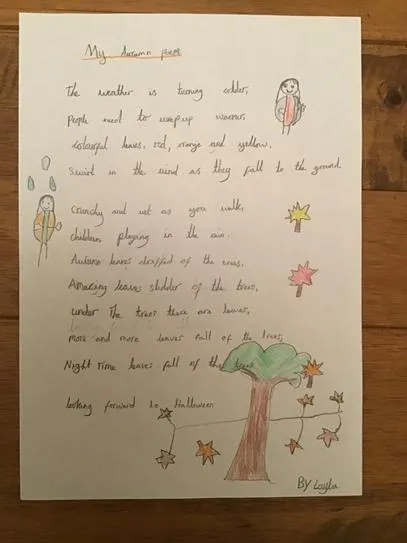 My Autumn Poem
The weather is turning colder,
People need to wrap up warmer,
Colourful leaves, red, orange and yellow,
Swirl in the wind as they fall to the ground.
Crunchy and wet as you walk,
children playing in the rain.
Autumn leaves dropped of the trees,
Amazing leaves slidder of the trees,
under The trees there are leaves,
more and more leaves fall of the trees,
Night Time leaves fall of the trees
looking forward to Halloween
By Layla